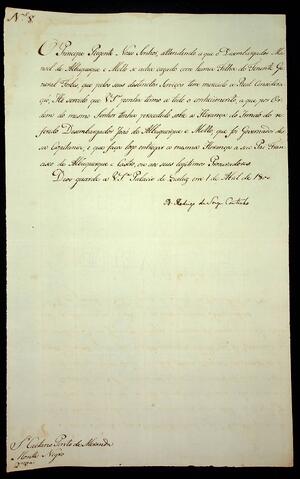 Nº 8
O Principe Regente Nosso Senhor, attendendo a que o Dezembargador Ma-
noel de Albuquerque e Mello se acha cazado com huma Filha do Tenente Ge-
neral Forbes, que pelos seus distinctos Serviços tem merecido a Real Considera-
ção, He servido que V Sª ponha termo a todo o conhecimento, a que por Or-
dem do mesmo Senhor tenha procedido sobre a Herança do Irmão do re-
ferido Dezembargador João de Albuquerque e Mello, que foi Governador
dessa Capitania, e que faça logo entregar a mesma Herança a seu Pai Fran-
cisco de Albuquerque e Castro, ou aos seus legitimos Procuradores.
Deos guarde a V Sª Palacio de Queluz em 1 de Abril de
D. Rodrigo de Souza Coutinho
Sr Caetano Pinto de Miranda
Monte Negro